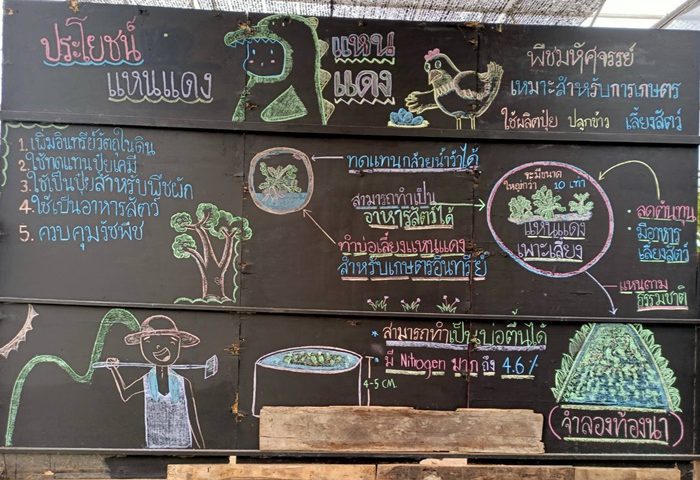 ประโยชน์
แหนแดง
แหน
แดง
พืชมหัศจรรย์
เหมาะสำหรับการเกษตร
ใช้ผลิตปุ๋ย ปลูกข้าว เลี้ยงสัตว์
1. เพิ่มอินทรีย์วัตถุในดิน
2. ใช้ทดแทนปุ๋ยเคมี
3. ใช้เป็นปุ๋ยสำหรับพืชผัก
4. ใช้เป็นอาหารสัตว์
5. ควบคุมวัชพืช
ทดแทนกล้วยน้ำว้าได้
สามารถทำเป็น
อาหารสัตว์ได้
ทำบ่อเลี้ยงแหนแดง
สำหรับเกษตรอินทรีย์
จะมีขนาด
ใหญ่กว่า 10 เท่า
แหนแดง
เพาะเลี้ยง
• ลดต้นทุน
• มีอาหาร
เลี้ยงสัตว์
แหนตาม
ธรรมชาติ
* สามารถทำเป็นบ่อตื้นได้
มี Nitrogen มาก ถึง 4.6 %
4-5 CM.
(จำลองท้องนา)